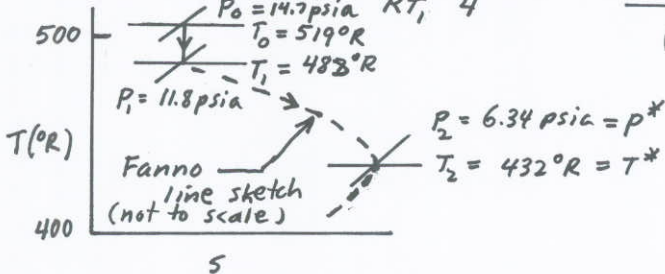 P₀ = 14.7 psia RT₁ 4
500
T₀ = 519°R
T₁ = 488°R
P₁ = 11.8 psia
T(°R)
P₂ = 6.34 psia = P*
T₂ = 432°R = T*
Fanno
line sketch
(not to scale)
400
s